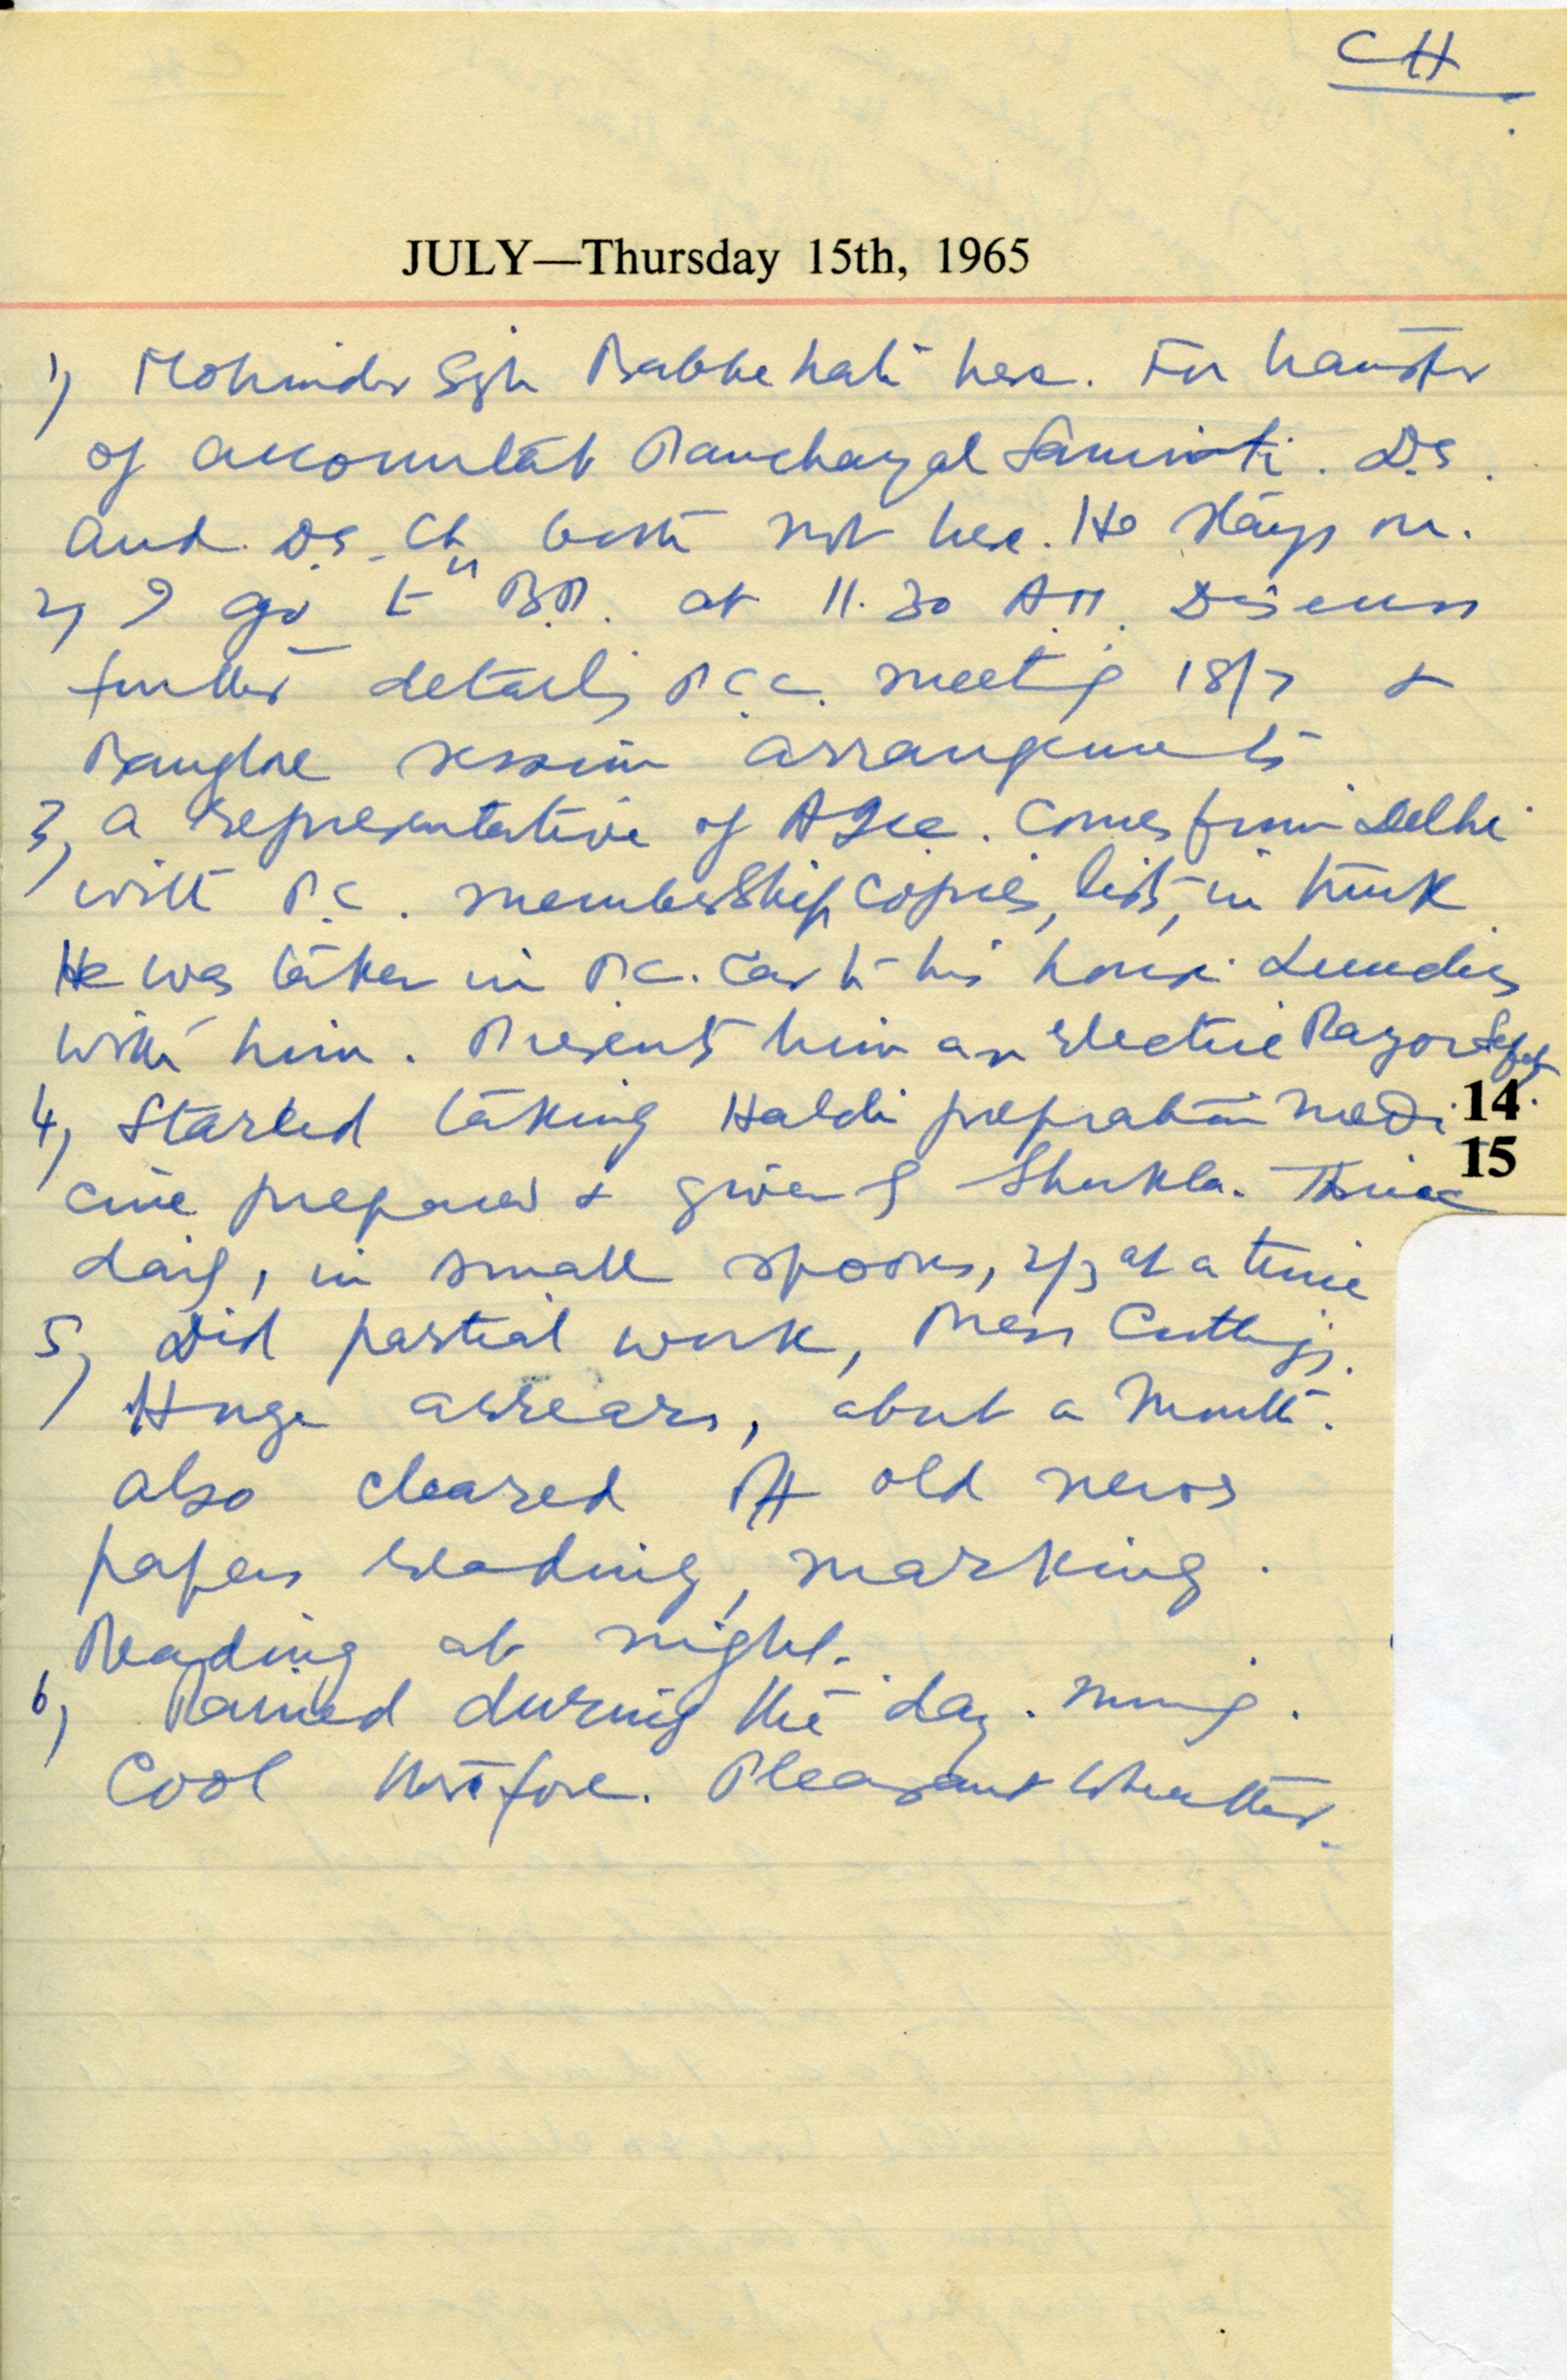 CH
JULY—Thursday 15th, 1965
1) Mohinder Sgh Babbehali here. For transfer
of accountant Panchayat Samiti. D.S.
and D.S. Ch. both not here. He stays on.
2) I go to B.P. at 11.30 A.M. Discuss
further details P.C.C. meeting 18/7 &
Banglore session arrangements
3) a representative of AICC. comes from Delhi
with P.C. membership copies, lists, in trunk
He was taken in P.C. Car to his house. Lunches
with him. Presents him an electric Razor
4) Started taking Haldi prepration medi
14
cine prepared & given by Shukla. Thrice
15
daily, in small spoons, 2/3 at a time
5) Did partial work, Press Cuttings.
Huge arrears, about a Month.
also cleared old news
papers reading, marking.
Reading at night.
6) Rained during the day. morning.
Cool therefore. Pleasant wheather.